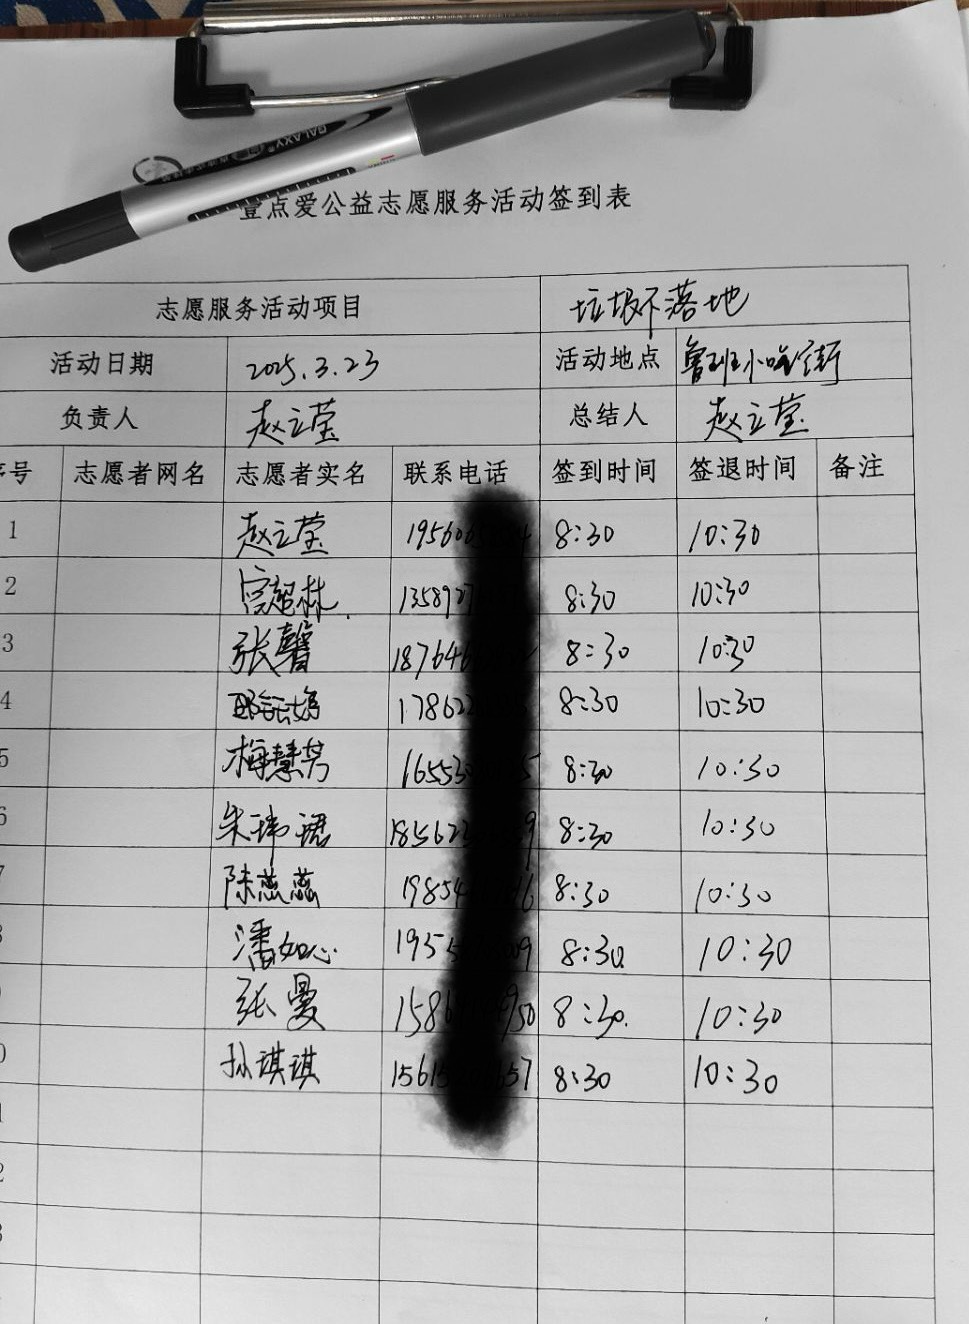 GALAXY
壹点爱公益志愿服务活动签到表
志愿服务活动项目 垃圾不落地
活动日期 2025.3.23 活动地点 鲁班小吃街
负责人 赵立莹 总结人 赵立莹
序号 志愿者网名 志愿者实名 联系电话 签到时间 签退时间 备注
1 赵立莹 8:30 10:30
2 宫超林 8:30 10:30
3 张馨 8:30 10:30
4 8:30 10:30
5 梅慧芳 8:30 10:30
6 朱玮珺 8:30 10:30
7 陈蕊蕊 8:30 10:30
8 潘如心 8:30 10:30
张曼 8:30 10:30
0 孙琪琪 8:30 10:30
1
2
3